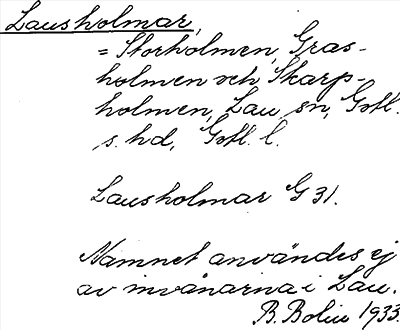 Lausholmar,
= Storholmen, Gras-
holmen och Skarp-
holmen, Lau sn, Gotl.
s. hd, Gotl. l.
Lausholmar G 31.
Namnet användes ej
av invånarna i Lau.
B. Bolin 1933.